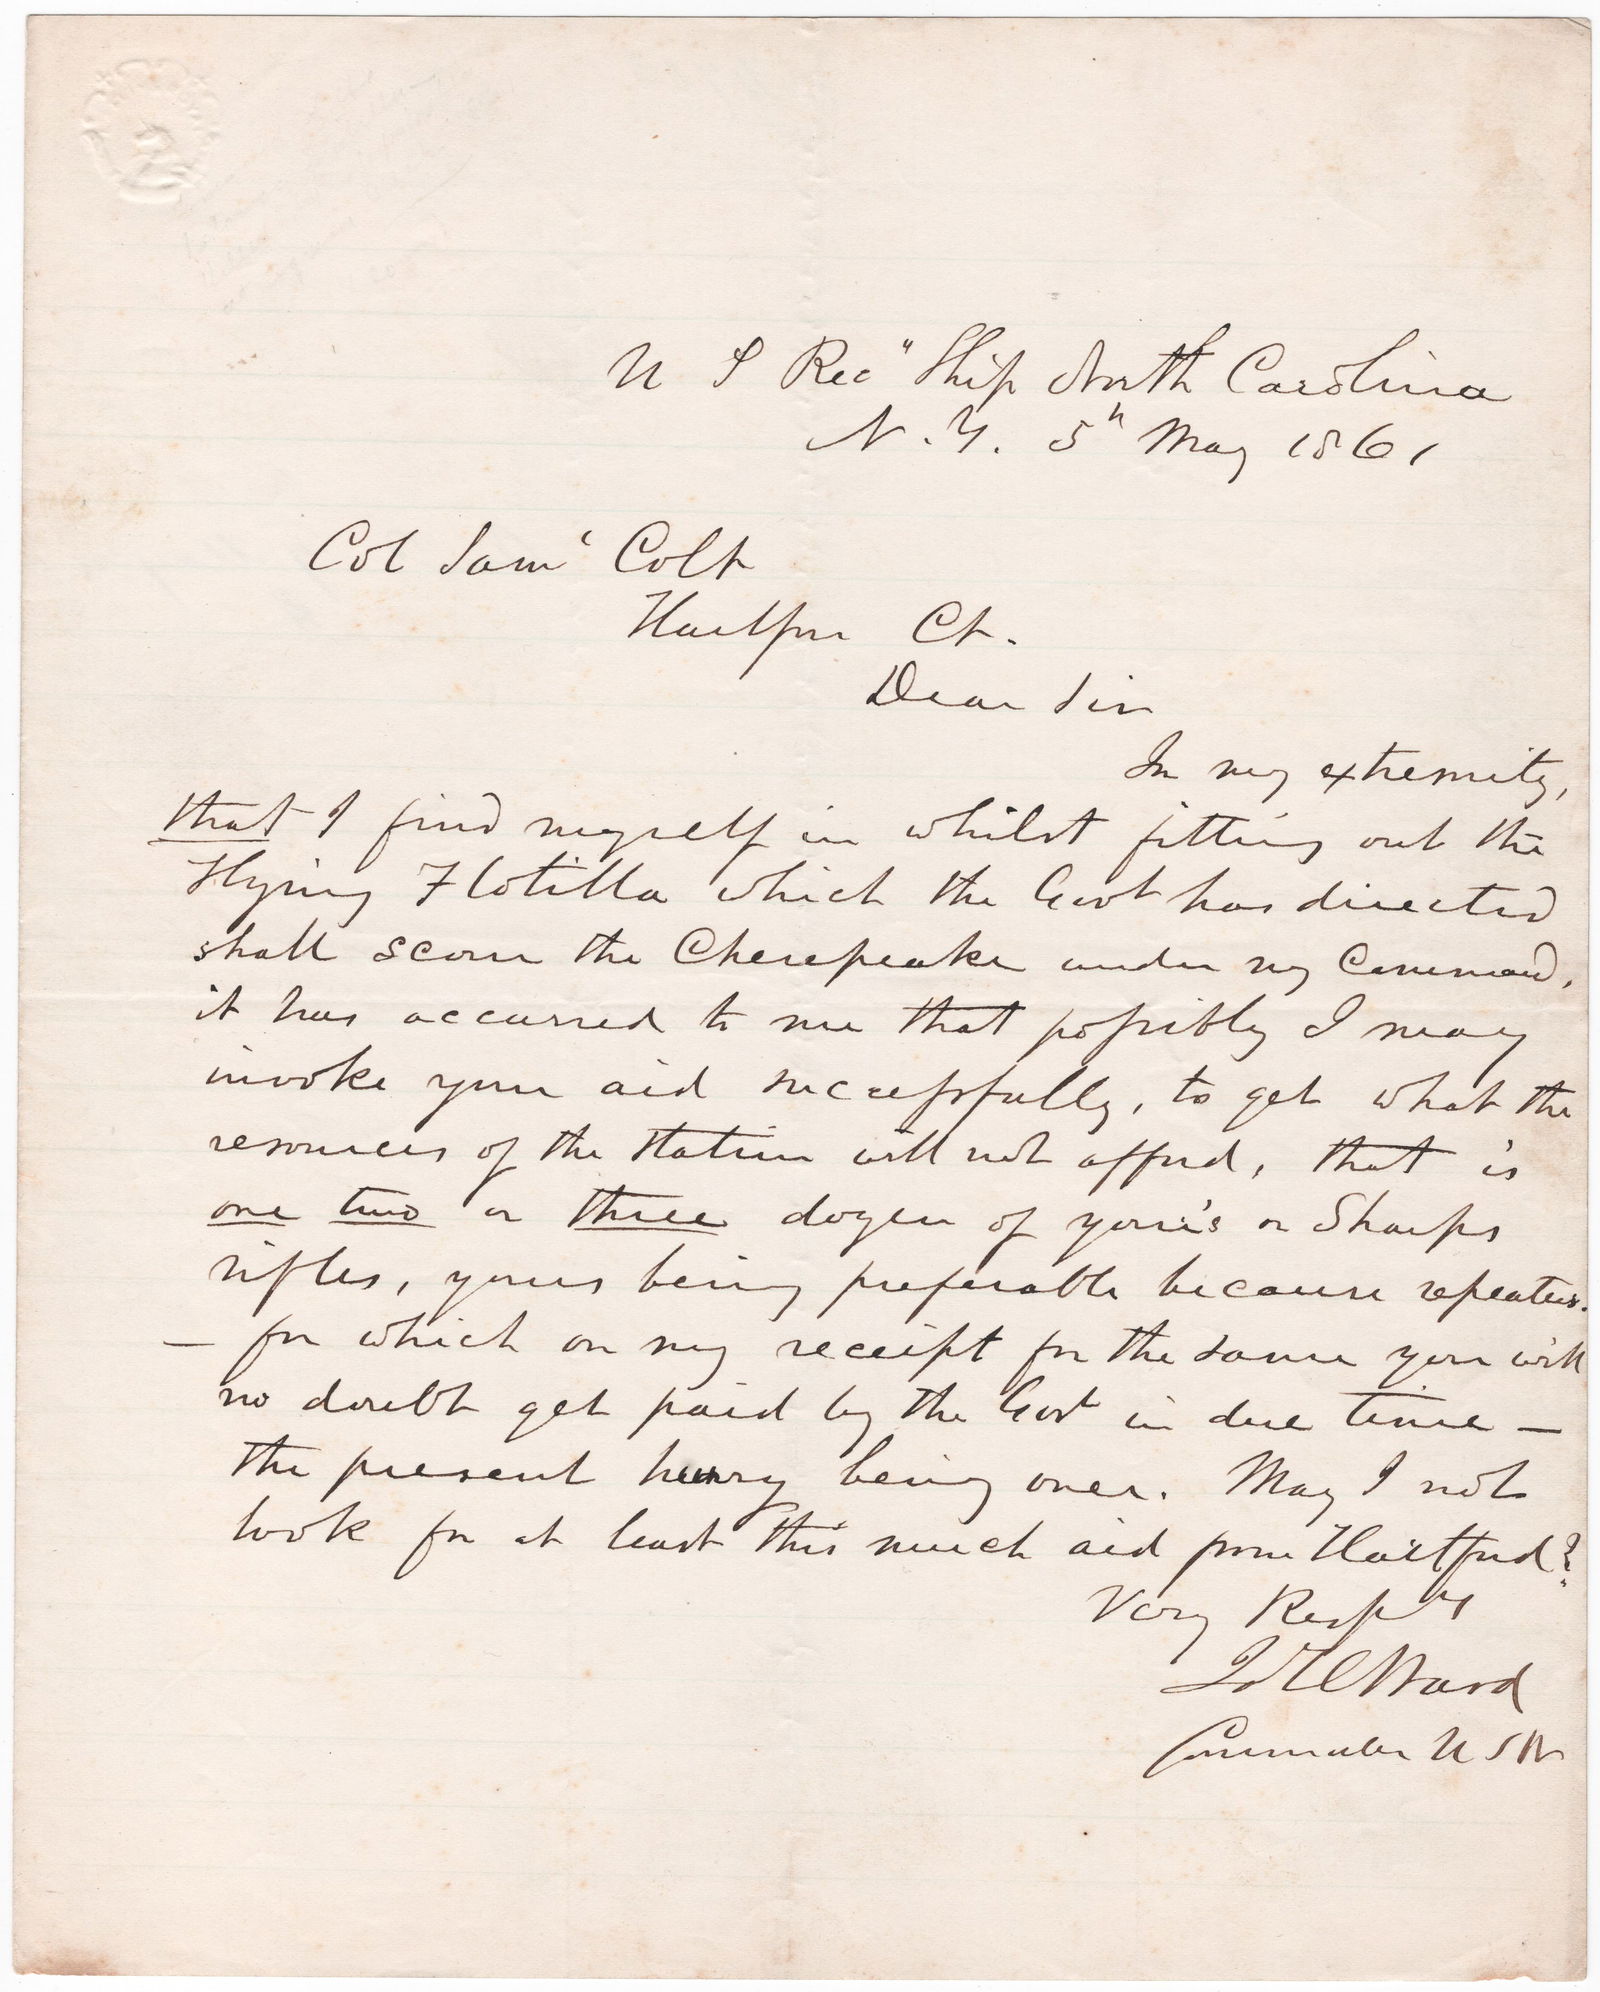 U S Rec" Ship North Carolina
N. Y. 5" May 1861
Col Sam' Colt
Hartford Ct.
Dear Sir
In my extremity,
that I find myself in whilst fitting out the
Flying Flotilla which the Govt has directed
shall scour the Chesepeake under my Command,
it has occurred to me that possibly I may
invoke your aid successfully, to get what the
resources of the Station will not afford, that is
one two or three dozen of your's or Sharps
rifles, yours being preferable because repeaters.
— for which on my receipt for the same you will
no doubt get paid by the Govt in due time —
the present hurry being over. May I not
look for at least this much aid from Hartford?
Very Respy
J H Ward
Commander U S N